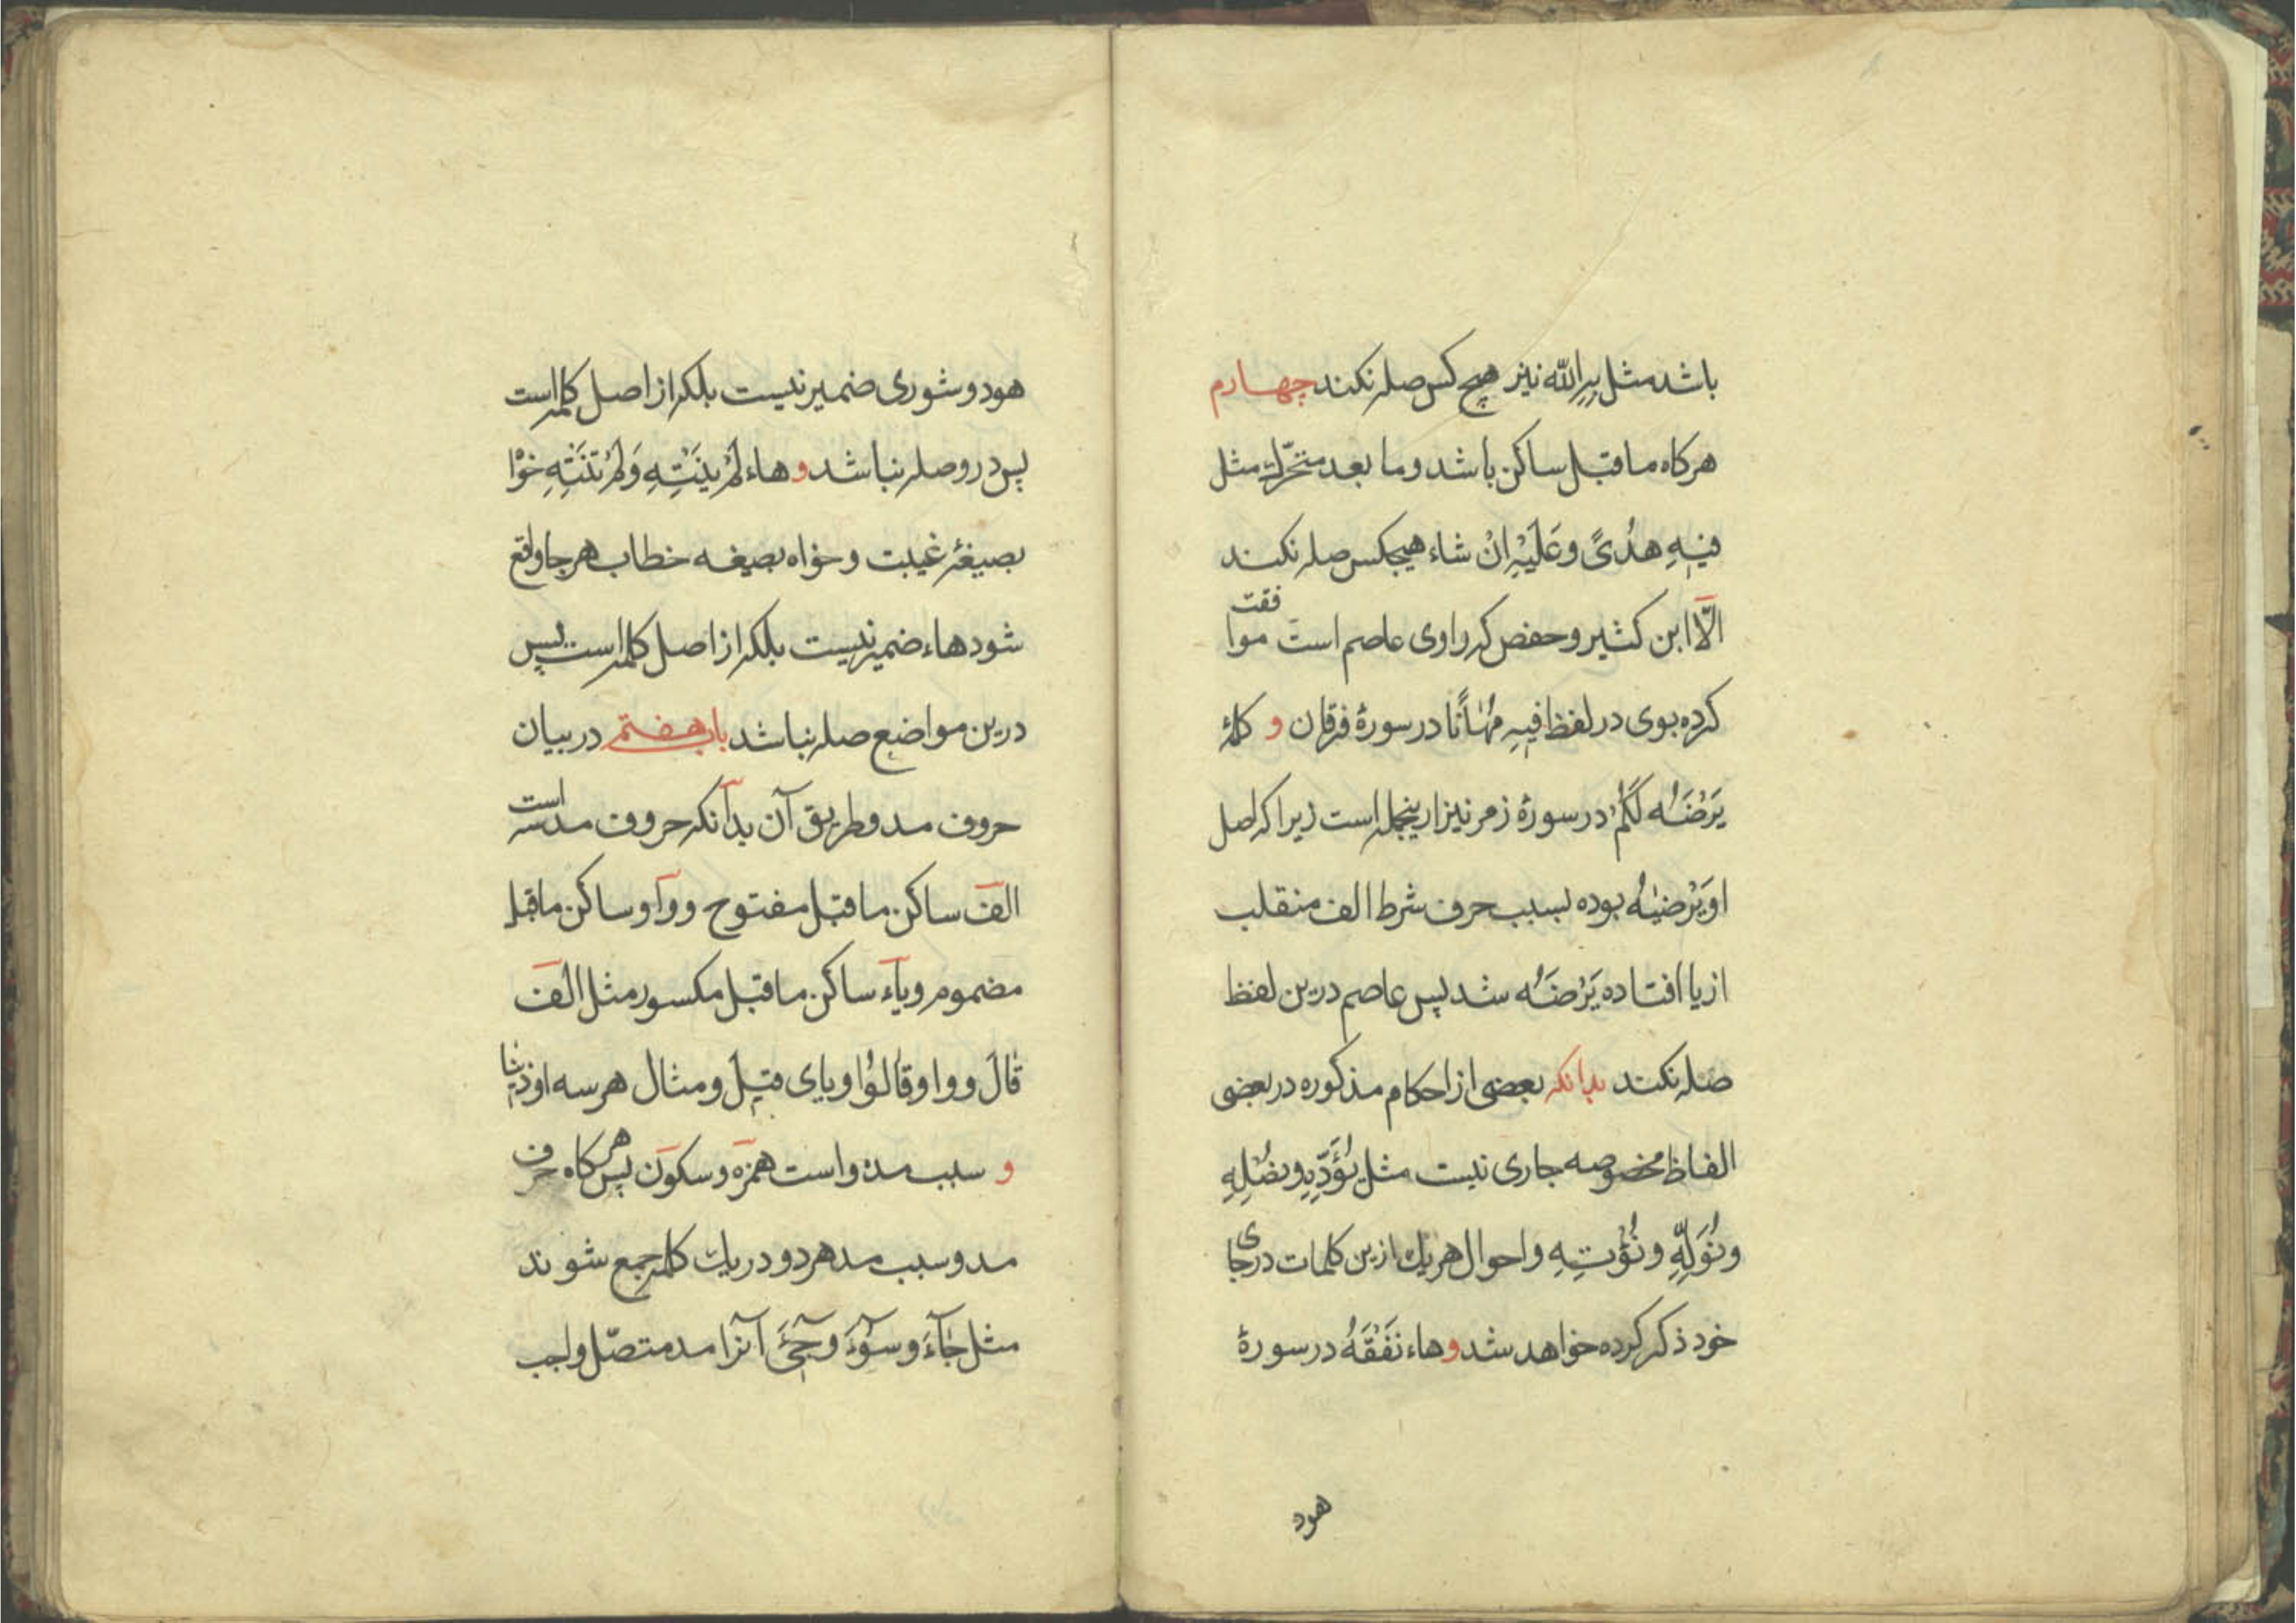 باشد مثل بِهِ اللّه نیز هیچ کس صله نکند چهارم
هر کاه ما قبل ساکن باشد و ما بعد متحرّك مثل
فیهِ هُدًی و عَلَیْهِ اِنْ شاء هیچکس صله نکند
الّا ابن کثیر و حفص که راوی عاصم است موافقت
کرده بوی در لفظ فیهِ مُهَانًا در سورهٔ فرقان و کلمهٔ
یَرْضَهُ لَکُمْ در سورهٔ زمر نیز ازینجمله است زیرا که اصل
او یَرْضیٰهُ بوده بسبب حرف شرط الف منقلب
از یا افتاده یَرْضَهُ شد پس عاصم درین لفظ
صله نکند بدانکه بعضی از احکام مذکوره در بعضی
الفاظ مخصوصه جاری نیست مثل یُؤَدِّهِ و نُصْلِهِ
و نُوَلِّهِ و نُؤْتِهِ و احوال هر یك ازین کلمات در جای
خود ذکر کرده خواهد شد و هاء نَفْقَهُ در سورهٔ
هود
هود و شوری ضمیر نیست بلکه از اصل کلمه است
پس درو صله نباشد و هاء لَمْ یَنْتَهِ وَ لَمْ تَنْتَهِ خواه
بصیغهٔ غیبت و خواه بصیغه خطاب هر جا واقع
شود هاء ضمیر نیست بلکه از اصل کلمه است پس
درین مواضع صله نباشد باب هفتم در بیان
حروف مد و طریق آن بدآنکه حروف مد سه است
الف ساکن ما قبل مفتوح و واو ساکن ما قبل
مضموم و یاء ساکن ما قبل مکسور مثل الف
قَالَ و واو قَالُوْا و یای قیلَ و مثال هر سه اوذینا
و سبب مد دو است همزه و سکون پس هر کاه حرف
مد و سبب مد هر دو در یك کلمه جمع شوند
مثل جَآءَ و سُوٓءَ و جِیٓءَ آنرا مد متصّل واجب